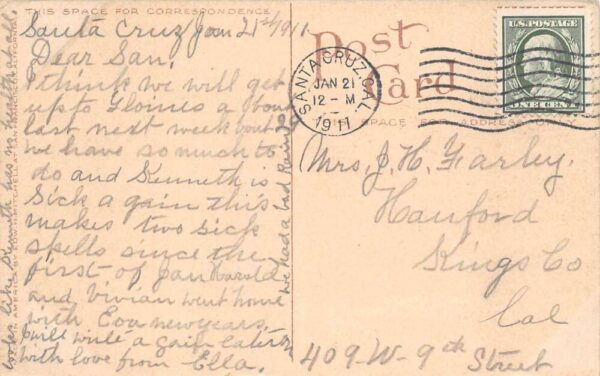 THIS SPACE FOR CORRESPONDENCE
Santa Cruz Jan 21st/1911
Dear San,
I think we will get
up to Eloines a bout
last next week
we have so much to
do and Kenneth is
Sick a gain this
makes two sick
spells since the
first of Jan Harold
and Vivian went home
with Eva newyears
will write a gain later
with love from Ella.
we had a bad Rain
looks like Kenneth has no health at all
Post
Card
SPACE FOR ADDRESS
SANTA CRUZ, CAL.
JAN 21
12 - M
1911
U.S. POSTAGE
ONE CENT
Mrs, J. H. Farley.
Hanford
Kings Co
Cal
409-W-9th Street